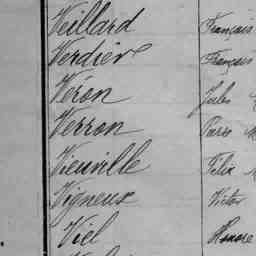 Veillard François
Verdier François
Véron Jules
Verron Pierre
Vieuville Félix
Vigneux Victor
Viel Honoré